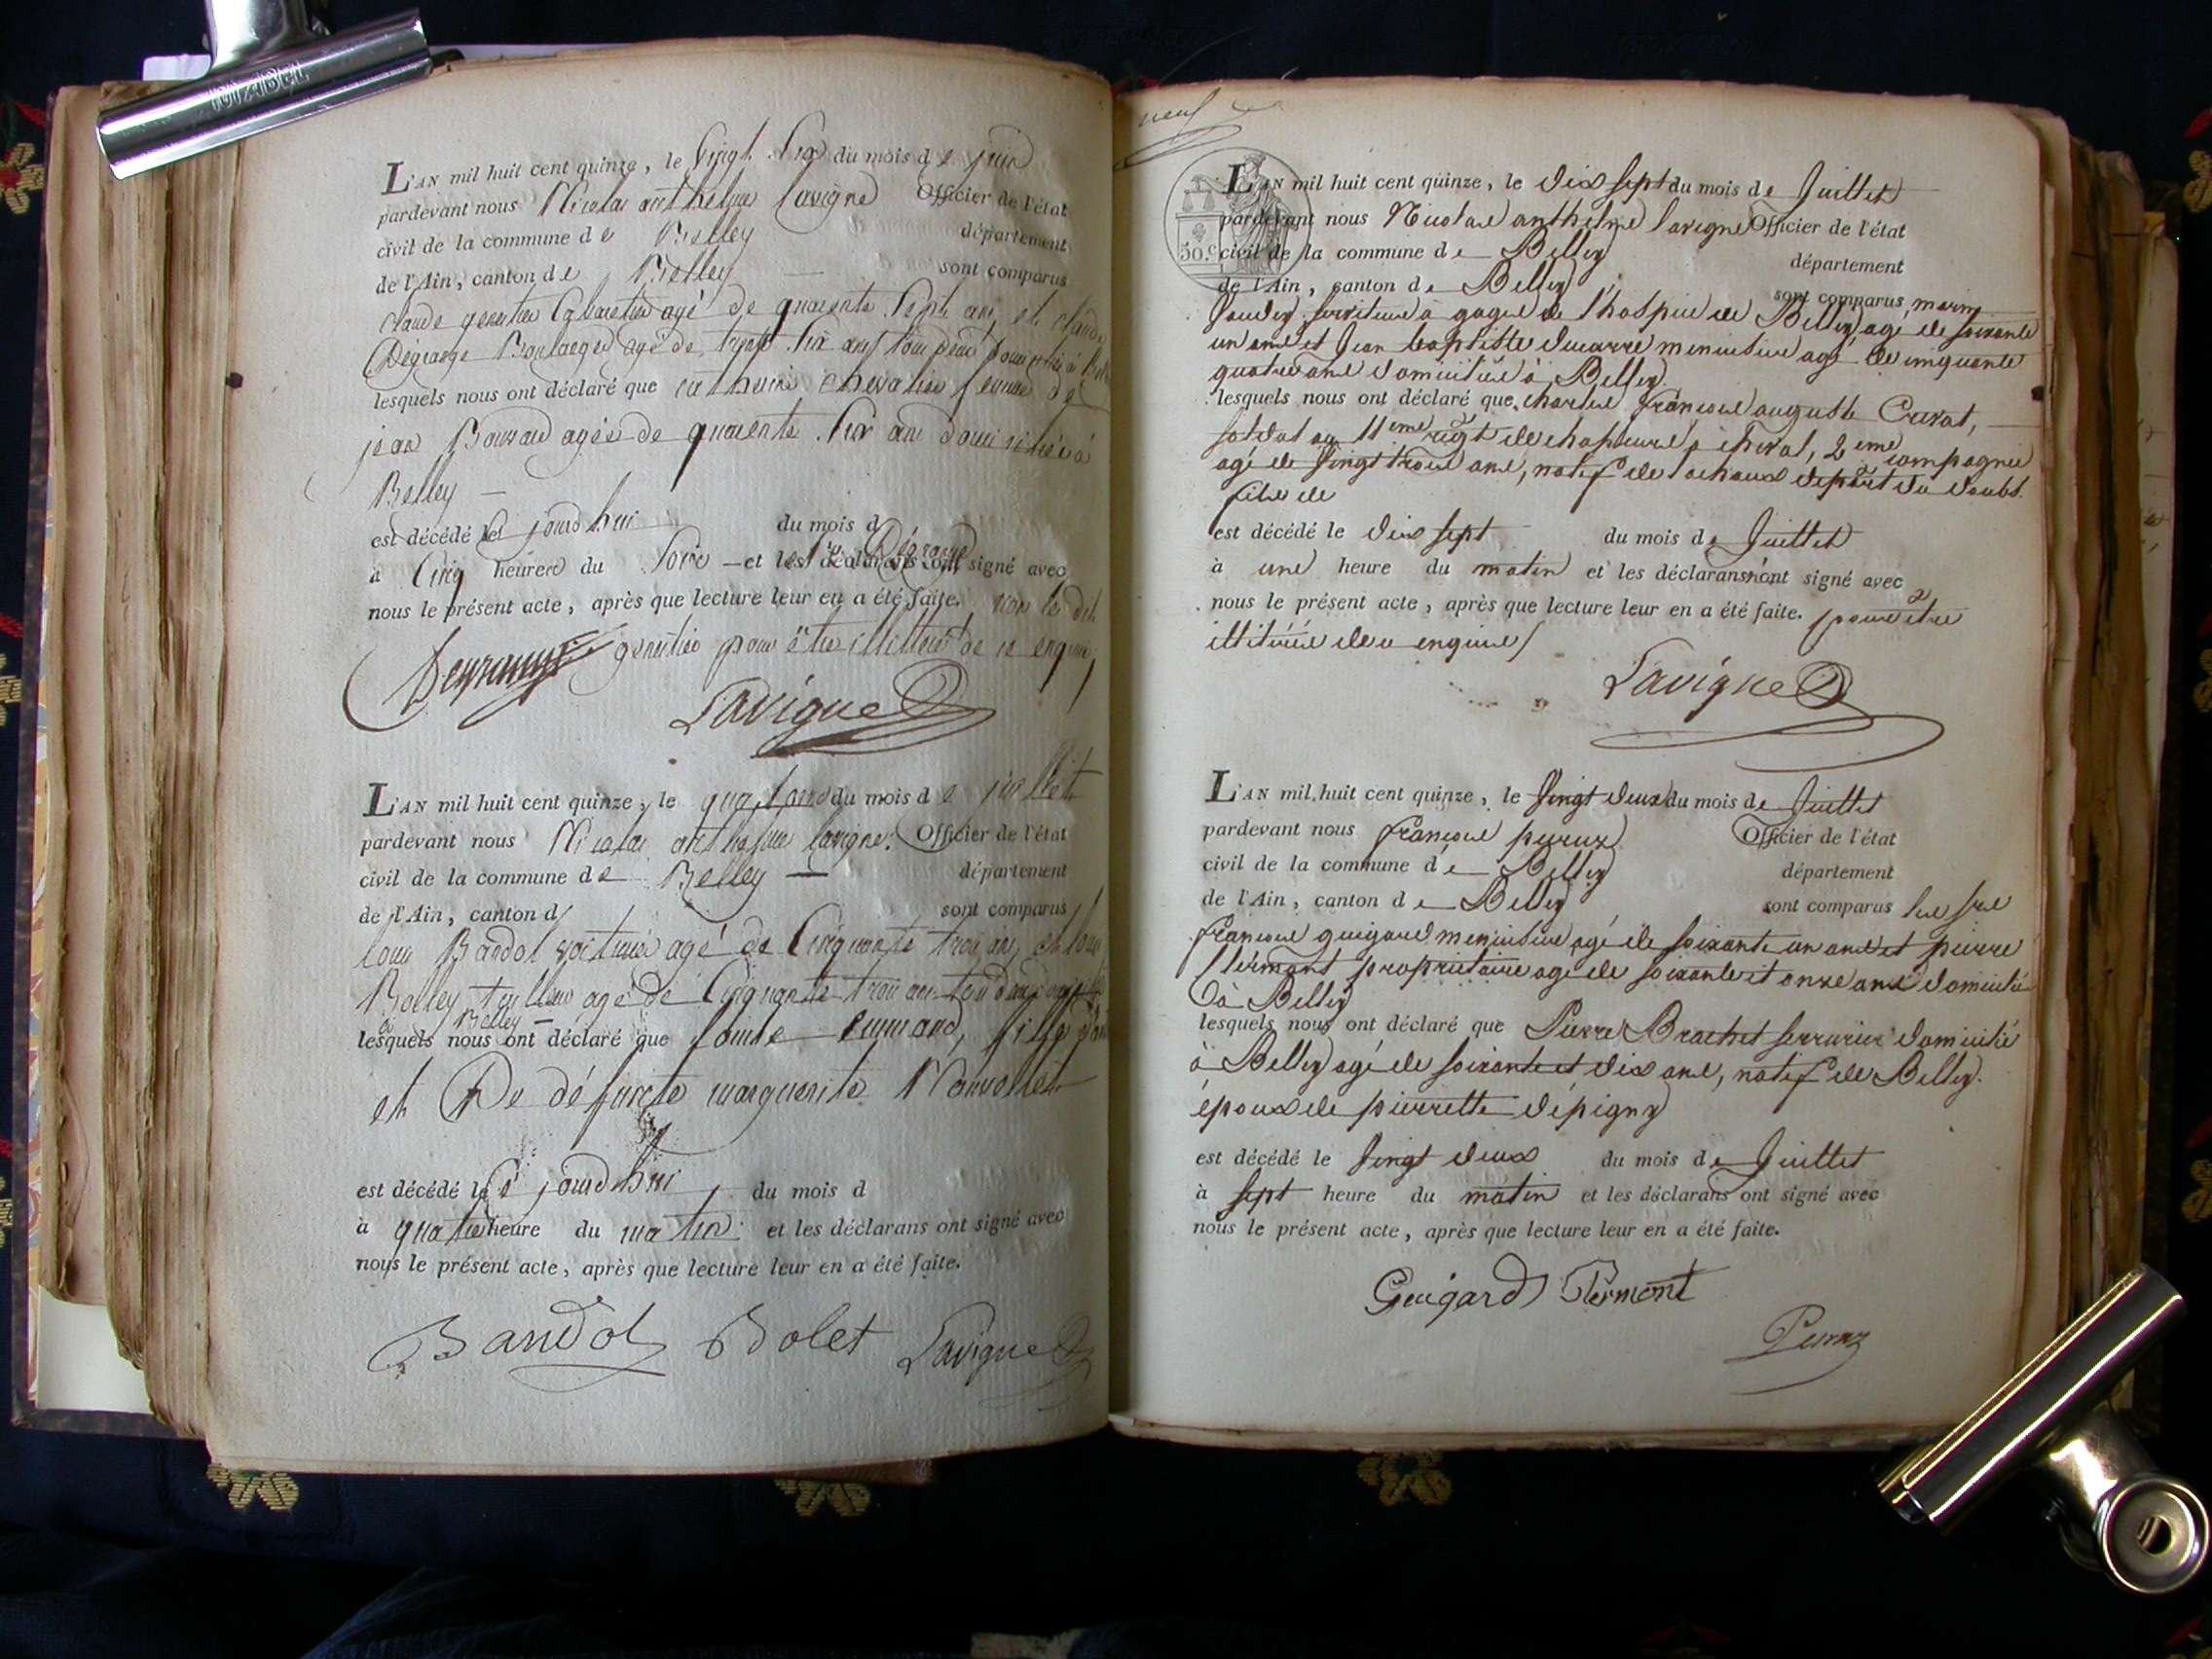 L'AN mil huit cent quinze, le vingt six du mois de juin
pardevant nous Nicolas anthelme Lavigne Officier de l'état
civil de la commune de Belley département
de l'Ain, canton de Belley sont comparus
claude cabaretier agé de quarente sept ans et claude
Dégrange Boulanger agé de trente six ans tous deux
lesquels nous ont déclaré que catherine chevalier femme de
jean agée de quarente six ans domiciliée à
Belley
est décédé ce jourdhui du mois d
à cinq heures du soir et les déclarans ont signé avec
nous le présent acte, après que lecture leur en a été faite. non le dit
pour être illitteré de ce enquis
Lavigne
L'AN mil huit cent quinze, le quatorze du mois de juillet
pardevant nous Nicolas anthelme Lavigne Officier de l'état
civil de la commune de Belley département
de l'Ain, canton d sont comparus
louis Bandol voiturier agé de cinquante trois ans et
Bolley tailleur agé de cinquante trois ans tous deux
à Belley
lesquels nous ont déclaré que louise fille
et De défuncte marguerite
est décédé ce jourdhui du mois d
à quatre heure du matin et les déclarans ont signé avec
nous le présent acte, après que lecture leur en a été faite.
Bandol Bolet Lavigne
neuf
30.c
L'AN mil huit cent quinze, le dix sept du mois de Juillet
pardevant nous Nicolas anthelme Lavigne Officier de l'état
civil de la commune de Belley département
de l'Ain, canton de Belley sont comparus, marin
serviteur à gages de l'hospice de Belley agé de soixante
un ans et Jean baptiste ducarre menuisier agé de cinquante
quatre ans domiciliés à Belley
lesquels nous ont déclaré que charles françois auguste Cruvat,
soldat au 11eme regt de chasseurs à cheval, 2eme compagnie
agé de vingt trois ans, natif de lachaux depart du doubs
fils de
est décédé le dix sept du mois de Juillet
à une heure du matin et les déclarans n'ont signé avec
nous le présent acte, après que lecture leur en a été faite. pour être
illitérés de ce enquis
Lavigne
L'AN mil huit cent quinze, le vingt deux du mois de Juillet
pardevant nous françois peruz Officier de l'état
civil de la commune de Belley département
de l'Ain, canton de Belley sont comparus les srs
françois guigard menuisier agé de soixante un ans et pierre
Clermont propriétaire agé de soixante et onze ans domiciliés
à Belley
lesquels nous ont déclaré que Pierre Brachet serrurier domicilié
à Belley agé de soixante et dix ans, natif de Belley.
époux de pierrette dépigny
est décédé le vingt deux du mois de Juillet
à sept heure du matin et les déclarans ont signé avec
nous le présent acte, après que lecture leur en a été faite.
Guigard Clermont
Peruz